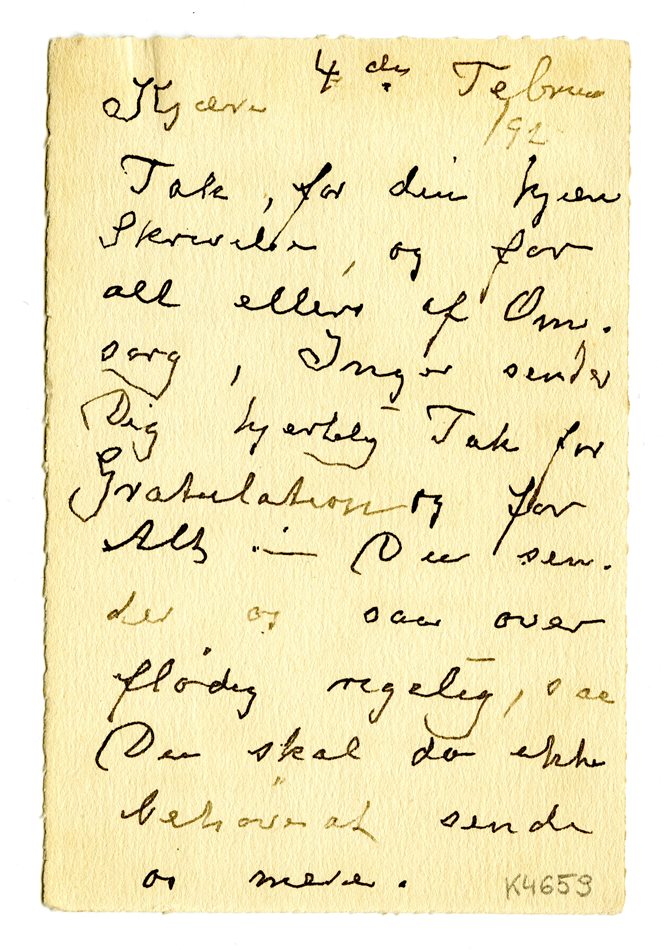 4 de Februa
Kjære 92
Tak, for din kjære
Skrivelse, og for
alt ellers af Om-
sorg, Inger sender
Dig hjertelig Tak for
Gratulation og for
Alt — Du sen-
der os saa over
flødig rigelig, saa
Du skal da ikke
behøve at sende
os mere.
K4659